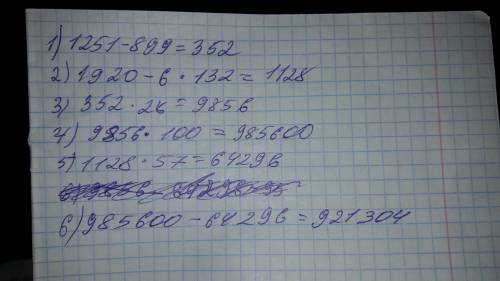 1) 1251-899=352
2) 1920-6·132=1128
3) 352·28=9856
4) 9856·100=985600
5) 1128·57=64296
6) 985600-64296=921304